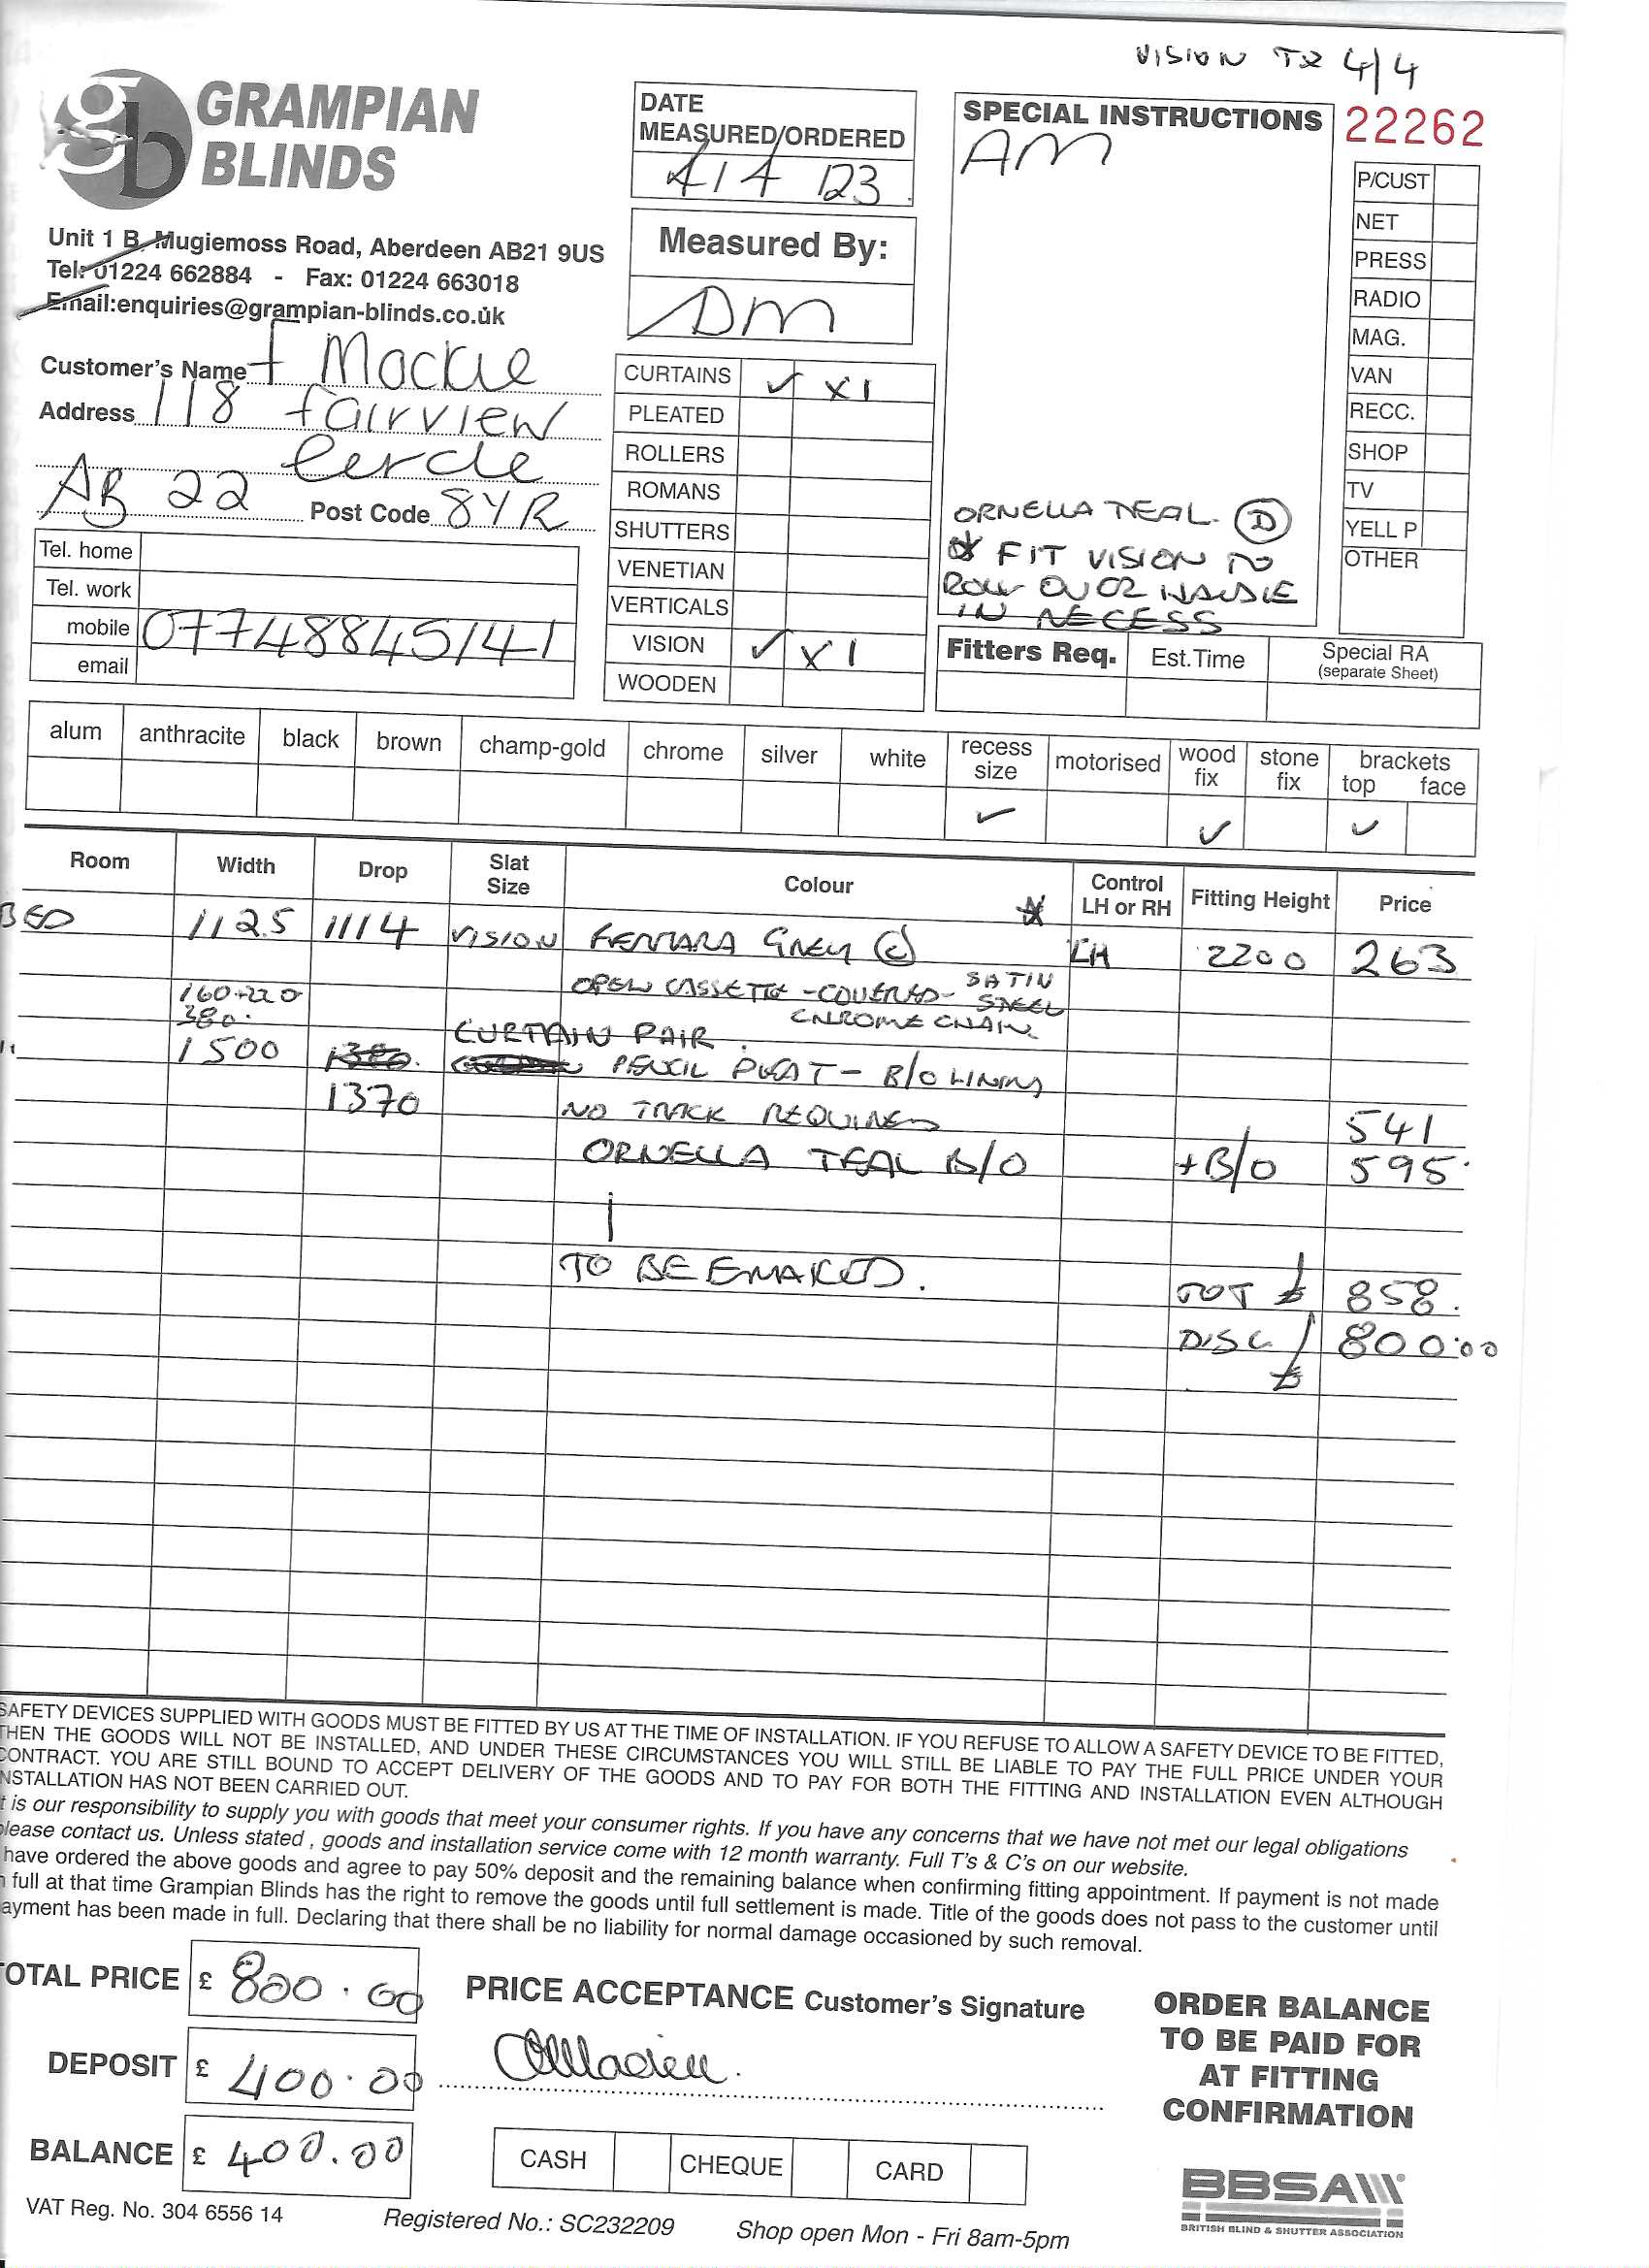 VISION TX 4/4
GRAMPIAN
BLINDS
Unit 1 B, Mugiemoss Road, Aberdeen AB21 9US
Tel: 01224 662884 - Fax: 01224 663018
Email:enquiries@grampian-blinds.co.uk
DATE
MEASURED/ORDERED
4/4/23
Measured By:
DM
SPECIAL INSTRUCTIONS
AM
ORNELLA TEAL. D
* FIT VISION TO
ROLL OVER HANDLE
IN RECESS
22262
P/CUST
NET
PRESS
RADIO
MAG.
VAN
RECC.
SHOP
TV
YELL P
OTHER
Customer's Name F Mackie
Address 118 Fairview
Circle
AB 22 Post Code 8YR
Tel. home
Tel. work
mobile 07748845141
email
CURTAINS ✓ X1
PLEATED
ROLLERS
ROMANS
SHUTTERS
VENETIAN
VERTICALS
VISION ✓ X1
WOODEN
Fitters Req. Est.Time Special RA
(separate Sheet)
alum anthracite black brown champ-gold chrome silver white recess size motorised wood fix stone fix brackets top face
✓ ✓ ✓
Room Width Drop Slat Size Colour * Control LH or RH Fitting Height Price
BED 1125 1114 VISION FERRARA GREY (C) LH 2200 263
OPEN CASSETTE - COVERED - SATIN STEEL
160+220
380. CHROME CHAIN
CURTAIN PAIR.
" 1500 PENCIL PLEAT - B/O LINING
1370 NO TRACK REQUIRED 541
ORNELLA TEAL B/O +B/O 595.
TO BE EMAILED.
TOT £ 858.
DISC £ 800.00
SAFETY DEVICES SUPPLIED WITH GOODS MUST BE FITTED BY US AT THE TIME OF INSTALLATION. IF YOU REFUSE TO ALLOW A SAFETY DEVICE TO BE FITTED,
THEN THE GOODS WILL NOT BE INSTALLED, AND UNDER THESE CIRCUMSTANCES YOU WILL STILL BE LIABLE TO PAY THE FULL PRICE UNDER YOUR
CONTRACT. YOU ARE STILL BOUND TO ACCEPT DELIVERY OF THE GOODS AND TO PAY FOR BOTH THE FITTING AND INSTALLATION EVEN ALTHOUGH
INSTALLATION HAS NOT BEEN CARRIED OUT.
t is our responsibility to supply you with goods that meet your consumer rights. If you have any concerns that we have not met our legal obligations
please contact us. Unless stated , goods and installation service come with 12 month warranty. Full T's & C's on our website.
have ordered the above goods and agree to pay 50% deposit and the remaining balance when confirming fitting appointment. If payment is not made
n full at that time Grampian Blinds has the right to remove the goods until full settlement is made. Title of the goods does not pass to the customer until
ayment has been made in full. Declaring that there shall be no liability for normal damage occasioned by such removal.
TOTAL PRICE £ 800.00
PRICE ACCEPTANCE Customer's Signature
DEPOSIT £ 400.00
BALANCE £ 400.00
CASH CHEQUE CARD
ORDER BALANCE
TO BE PAID FOR
AT FITTING
CONFIRMATION
BBSA
BRITISH BLIND & SHUTTER ASSOCIATION
VAT Reg. No. 304 6556 14
Registered No.: SC232209
Shop open Mon - Fri 8am-5pm